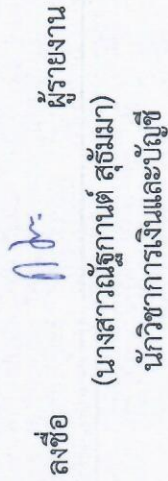 ลงชื่อ ผู้รายงาน
(นางสาวณัฐกานต์ สุธัมมา)
นักวิชาการเงินและบัญชี